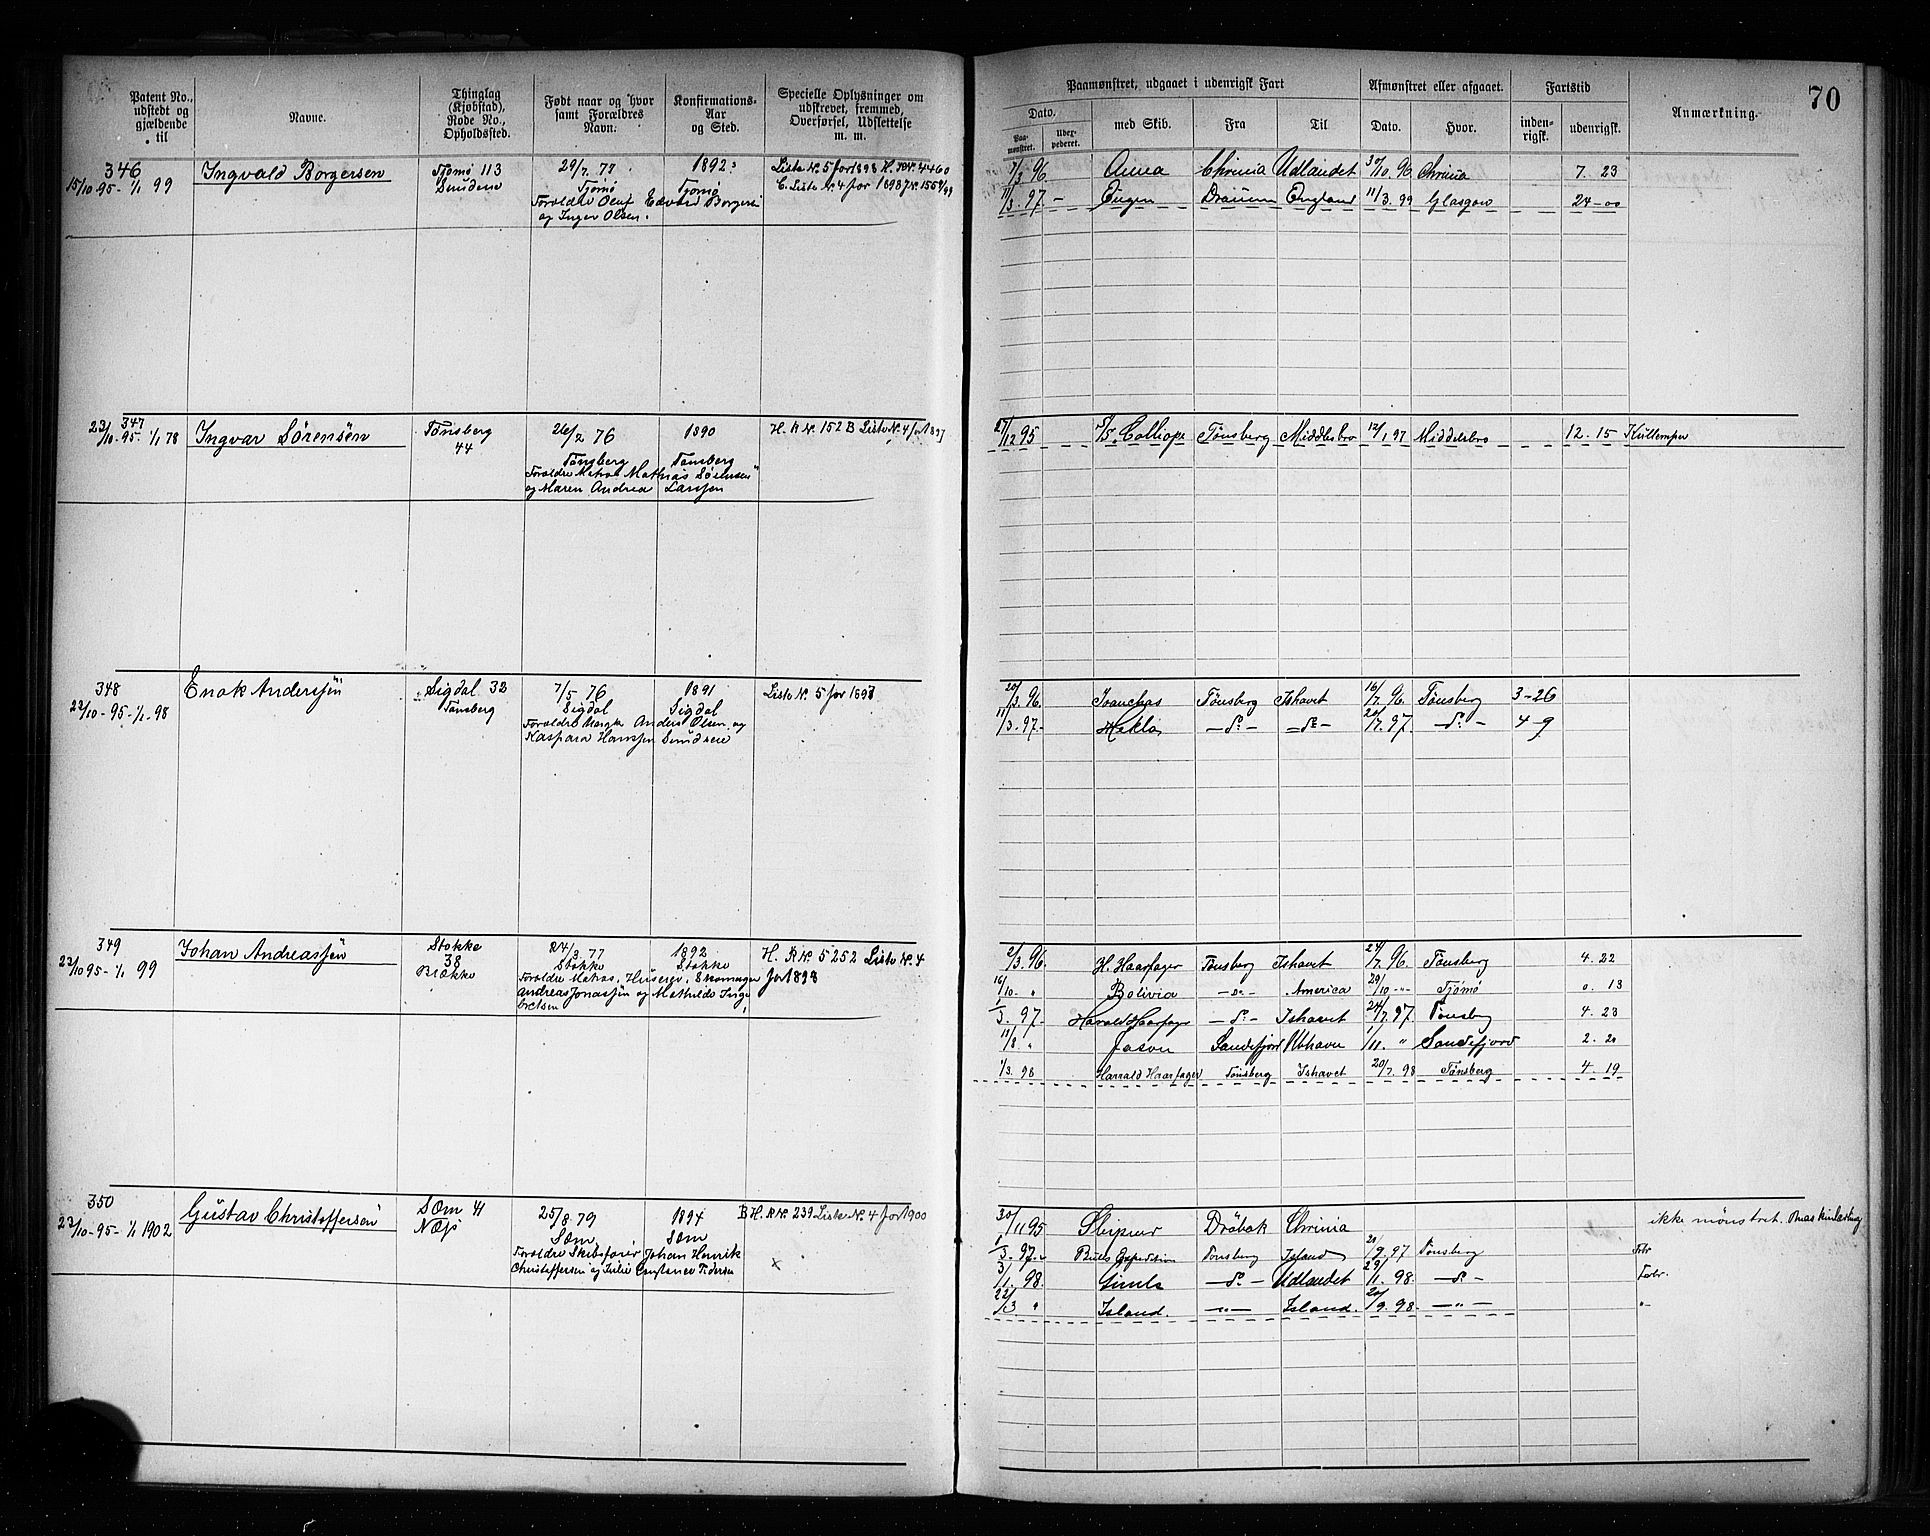 70
Patent No., udstedt og gjældende til
Navne.
Thinglag (Kjøbstad), Rode No., Opholdssted.
Født naar og hvor samt Forældres Navn.
Konfirmations-Aar og Sted.
Specielle Oplysninger om udskrevet, fremmed, Overførsel, Udslettelse m. m.
Paamønstret, udgaaet i udenrigsk Fart
Dato.
Paamønstret.
med Skib.
Fra
Til
Afmønstret eller afgaaet.
Dato.
Hvor.
Fartstid
indenrigsk.
udenrigsk.
Anmærkning.
346
15/10-95-1/1 99
Ingvald Borgersen
Tjømø 113
Sundene
29/7. 77
Tjømø
Forældre Oluf Edvard Borgersen
og Inger Olsen.
1892
Tjømø
Liste № 5 for 1898
C. Liste № 4 for 1898
7/3 96. Anna Chrinia Udlandet 30/10. 96. Chrinia 7. 23
11/3. 97. - Eugen Dramn England 11/3. 99 Glasgow 24-00
347
23/10-95-1/1 78
Ingvar Sørensen
Tønsberg
44
26/2 76
Tønsberg
Forældre Matros Mathias Sørensen
og Maren Andrea Larssen
1890
Tønsberg
H. R № 152 B Liste № 4 for 1897
27/12 95 S/S. Calliope Tønsberg Middlesbro 12/1 97 Middelsbro 12. 15 Kullemper
348
23/10-95-1/1-98
Enok Anderssen
Sigdal 32
Tønsberg
7/5 76
Sigdal
Forældre Anders Olsen og
Kaspara Hanssen Sundseie
1891
Sigdal
Liste № 5 for 1898
20/3. 96. Tønsberg Ishavet 16/7. 96. Tønsberg 3-26
11/3. 97.- Hekla -do- -do- 20/7. 97. -do- 4-9
349
23/10 95-1/1 99
Johan Andreassen
Stokke
38
Brække
24/3. 77
Stokke
Forældre Matros, Huseier, Skomager
Andreas Jonassen og Mathilde Inge
bretsen
1892
Stokke
H. R № 5252 Liste № 4
for 1898
2/3. 96. H. Haarfager Tønsberg Ishavet 24/7. 96. Tønsberg 4. 22
16/10. " Bolivia -do- America 29/10 -"- Tjømø 0. 13
1/3. 97.- Harald Haarfager -do- Ishavet 24/7. 97 Tønsberg 4. 23
11/8. " Jason Sandefjord 1/11. " Sandefjord 2. 20
1/3. 98 Harrald Haarfager Tønsberg Ishavet 20/7. 98 Tønsberg 4. 19
350
23/10-95-1/1 1902
Gustav Christoffersen
Sæm 41
Næs
25/8 79
Sæm
Forældre Skibsfører Johan Henrik
Christoffersen og Julie Constance Pedersen
1894
Sæm
B H. R № 239 Liste № 4 for 1900
×
30/11 95 Sleipner Drøbak Chrinia ikke mønstret.
1/3. 97. Bulls Expedition Tønsberg Island 21/9. 97 Tønsberg Fobr
3/1. 98. Simla -do- Udlandet 29/1. 98. -do- Fobr.
22/3 " Island. -"- Island. 20/9. 98. -"- "-